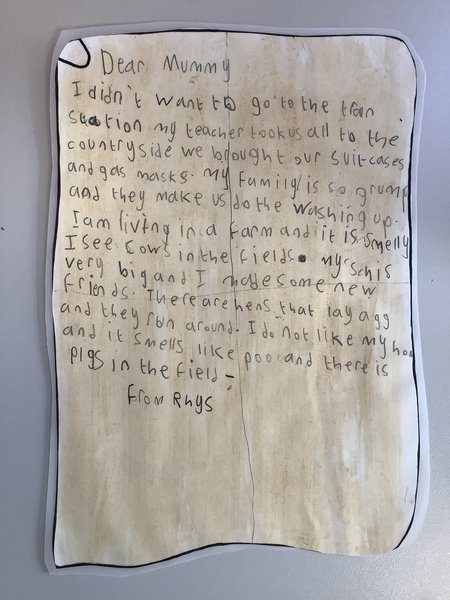 Dear Mummy
I didn't want to go to the tran
station my teacher took us all to the
countryside we brought our suitcases
and gas masks. my family is so grump
and they make us do the washing up.
I am living in a farm and it is smelly
I see cows in the fields. my
very big and I made some new
friends. There are hens that lay agg
and they run around. I do not like my
and it smells like poo and there is
pigs in the field
From Rhys